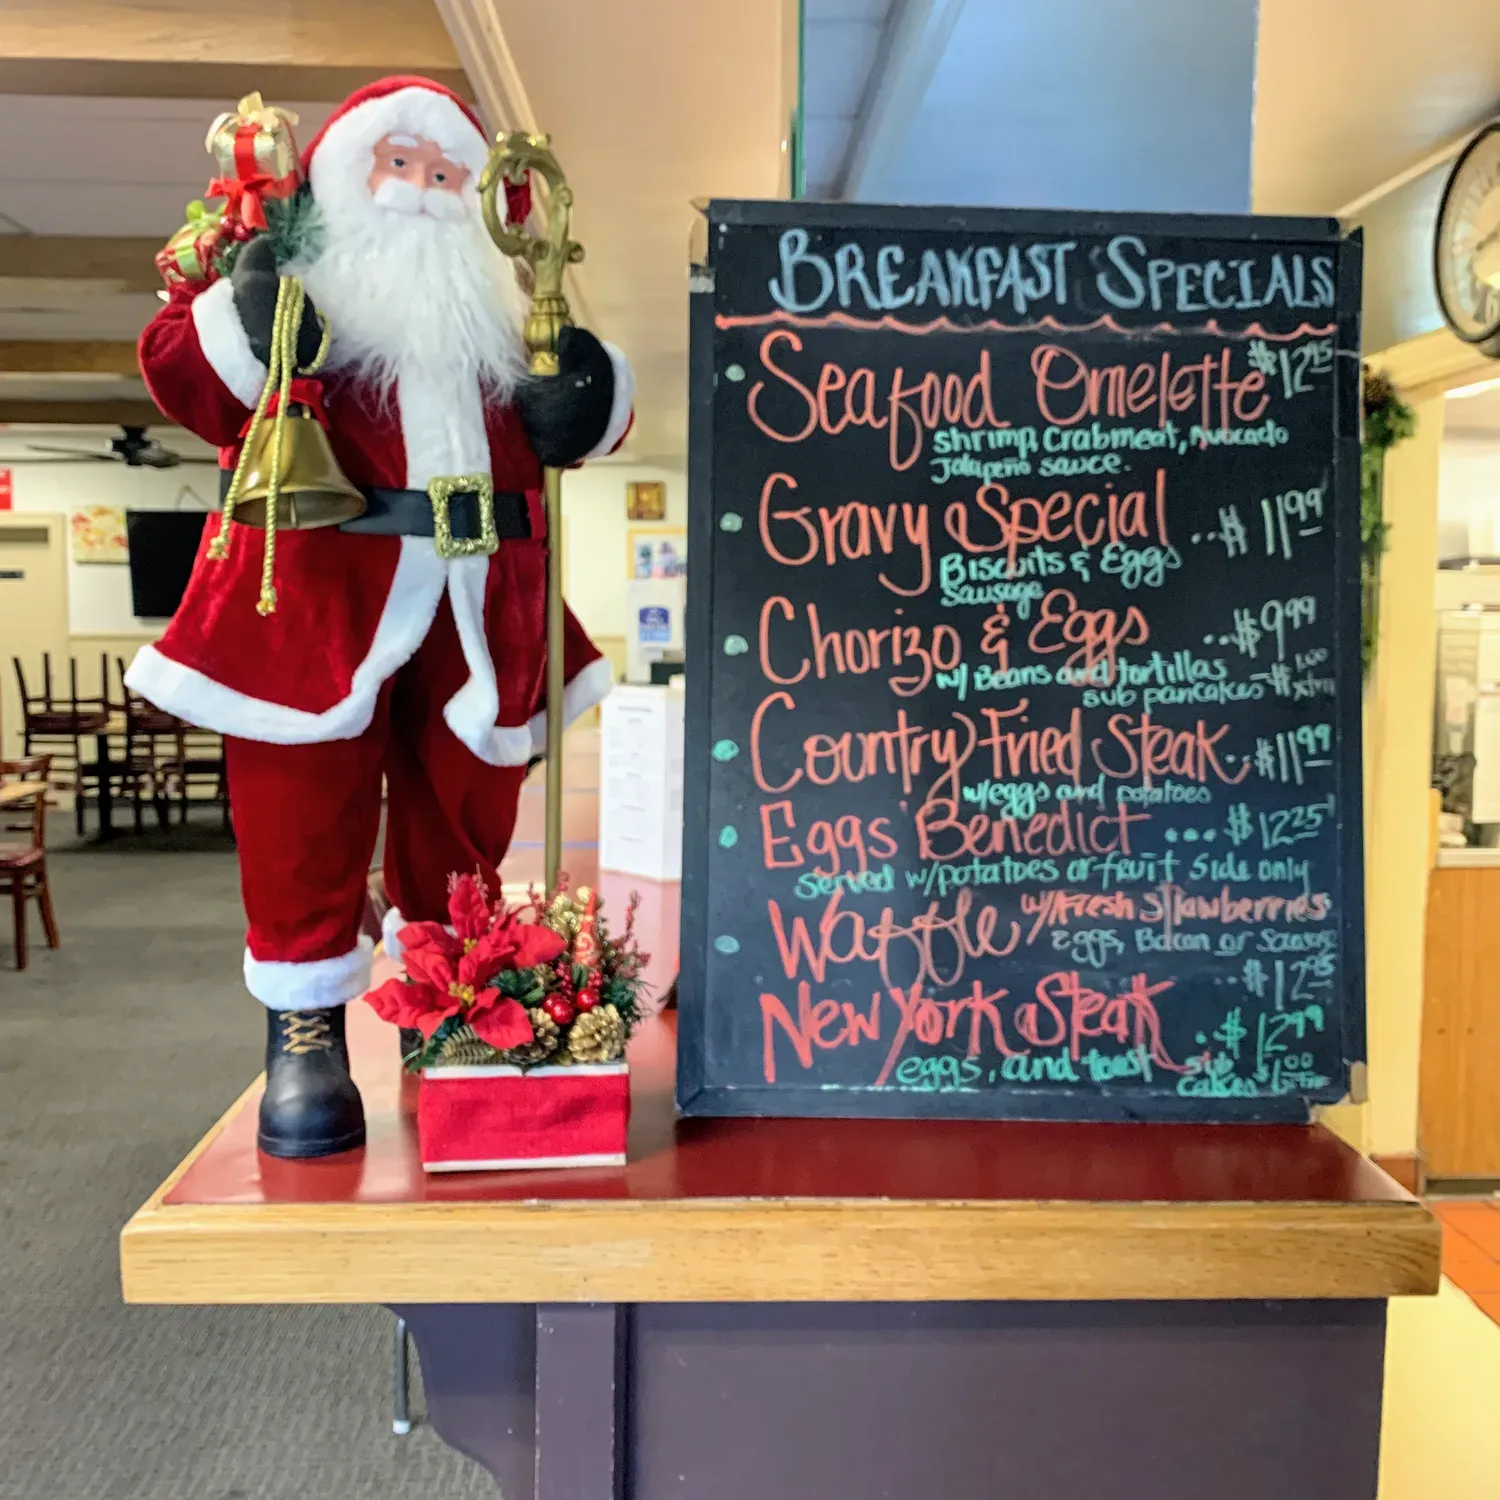 BREAKFAST SPECIALS
Seafood Omelette $12.95
shrimp, Crabmeat, Avocado
Jalapeño sauce.
Gravy Special ..$11.99
Biscuits & Eggs
Sausage
Chorizo & Eggs ..$9.99
w/ Beans and tortillas
sub pancakes - $1.00 xtra
Country Fried Steak..$11.99
w/eggs and potatoes
Eggs Benedict ... $12.25
Served w/potatoes or fruit side only
Waffle w/Fresh Strawberries
Eggs, Bacon or Sausage
$12.95
New York Steak .$12.99
eggs, and toast sub
cakes $1.00